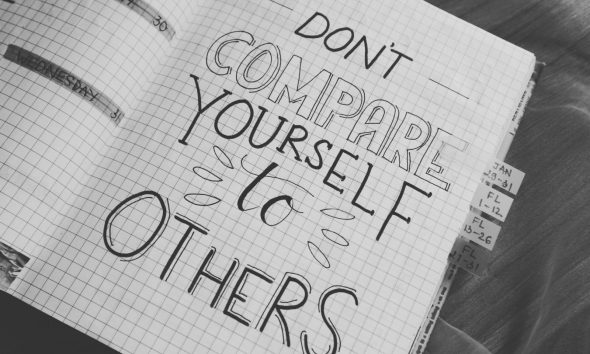 30
WEDNESDAY 31
DON'T
COMPARE
YOURSELF
to
OTHERS
JAN
29-31
FL
1-12
FL
13-26
FL